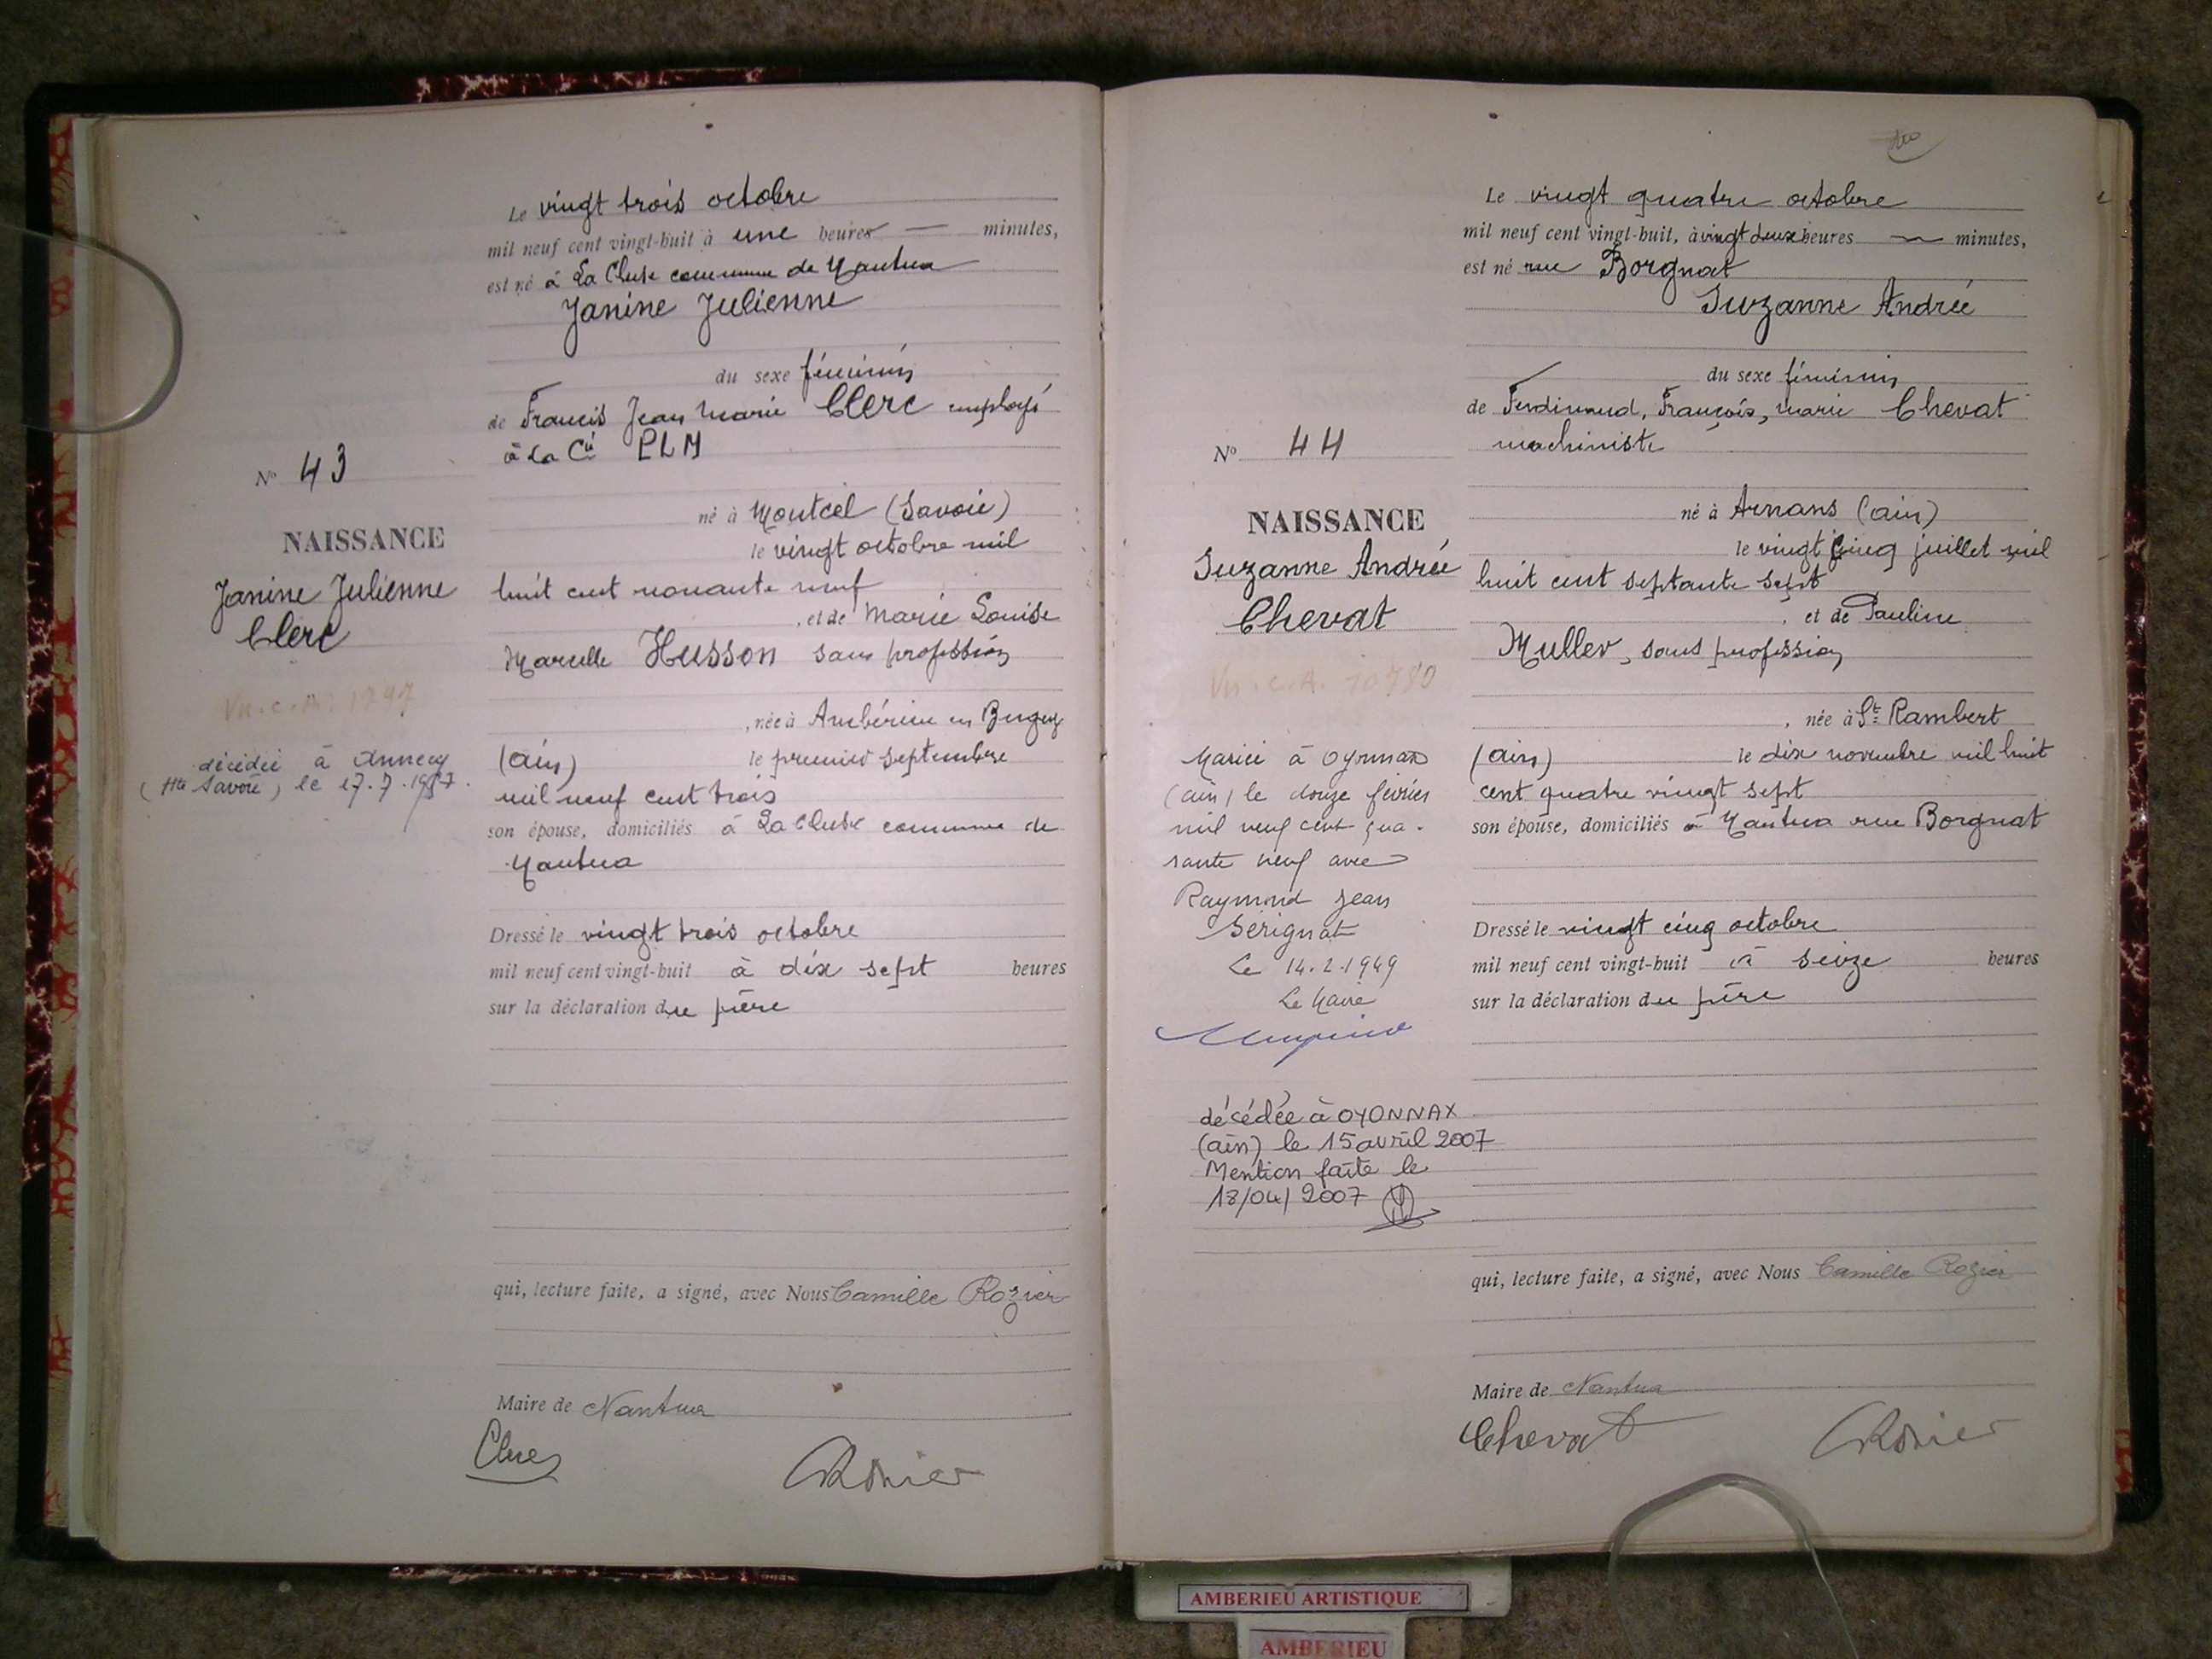 Le vingt trois octobre
mil neuf cent vingt-huit à une heures — minutes,
est né à La Cluse commune de Nantua
Janine Julienne
du sexe féminin
de Francis Jean Marie Clerc employé
à la Cie PLM
né à Montcel (Savoie)
le vingt octobre mil
huit cent nonante neuf
, et de Marie Louise
Marcelle Husson sans profession
, née à Ambérieu en Bugey
(ain) le premier septembre
mil neuf cent trois
son épouse, domiciliés à La Cluse commune de
Nantua
Dressé le vingt trois octobre
mil neuf cent vingt-huit à dix sept heures
sur la déclaration du père
qui, lecture faite, a signé, avec Nous Camille Rozier
Maire de Nantua
Clerc
CRozier
No 43
NAISSANCE
Janine Julienne
Clerc
Vu.c.A. 1797
décédée à Annecy
(Hte Savoie) le 17.7.
Le vingt quatre octobre
mil neuf cent vingt-huit, à vingt deux heures — minutes,
est né rue Borgnat
Suzanne Andrée
du sexe féminin
de Ferdinand, François, marie Chevat
machiniste
né à Arnans (ain)
le vingt cinq juillet mil
huit cent septante sept
, et de Pauline
Muller, sans profession
, née à St Rambert
(ain) le dix novembre mil huit
cent quatre vingt sept
son épouse, domiciliés à Nantua rue Borgnat
Dressé le vingt cinq octobre
mil neuf cent vingt-huit à seize heures
sur la déclaration du père
qui, lecture faite, a signé, avec Nous Camille Rozier
Maire de Nantua
Chevat
CRozier
No 44
NAISSANCE
Suzanne Andrée
Chevat
Vu.c.A. 10780
Mariée à Oyonnax
(ain) le douze février
mil neuf cent qua-
rante neuf avec
Raymond Jean
Sérignat
Le 14.2.1949
Le Maire
décédée à OYONNAX
(ain) le 15 avril 2007
Mention faite le
18/04/2007
AMBERIEU ARTISTIQUE
AMBERIEU